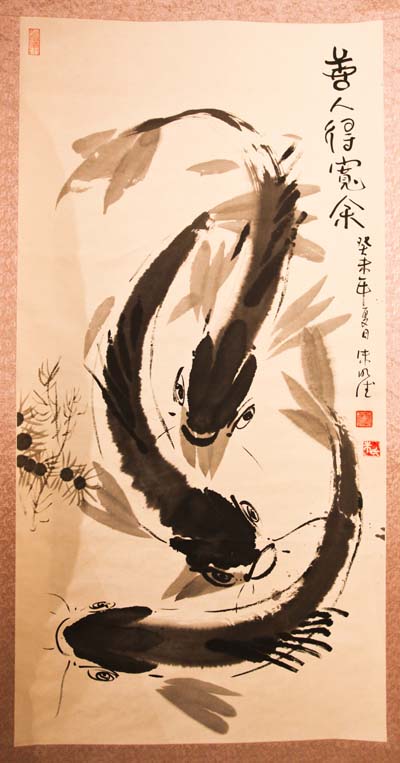 善人得寬余
癸未年夏日 朱